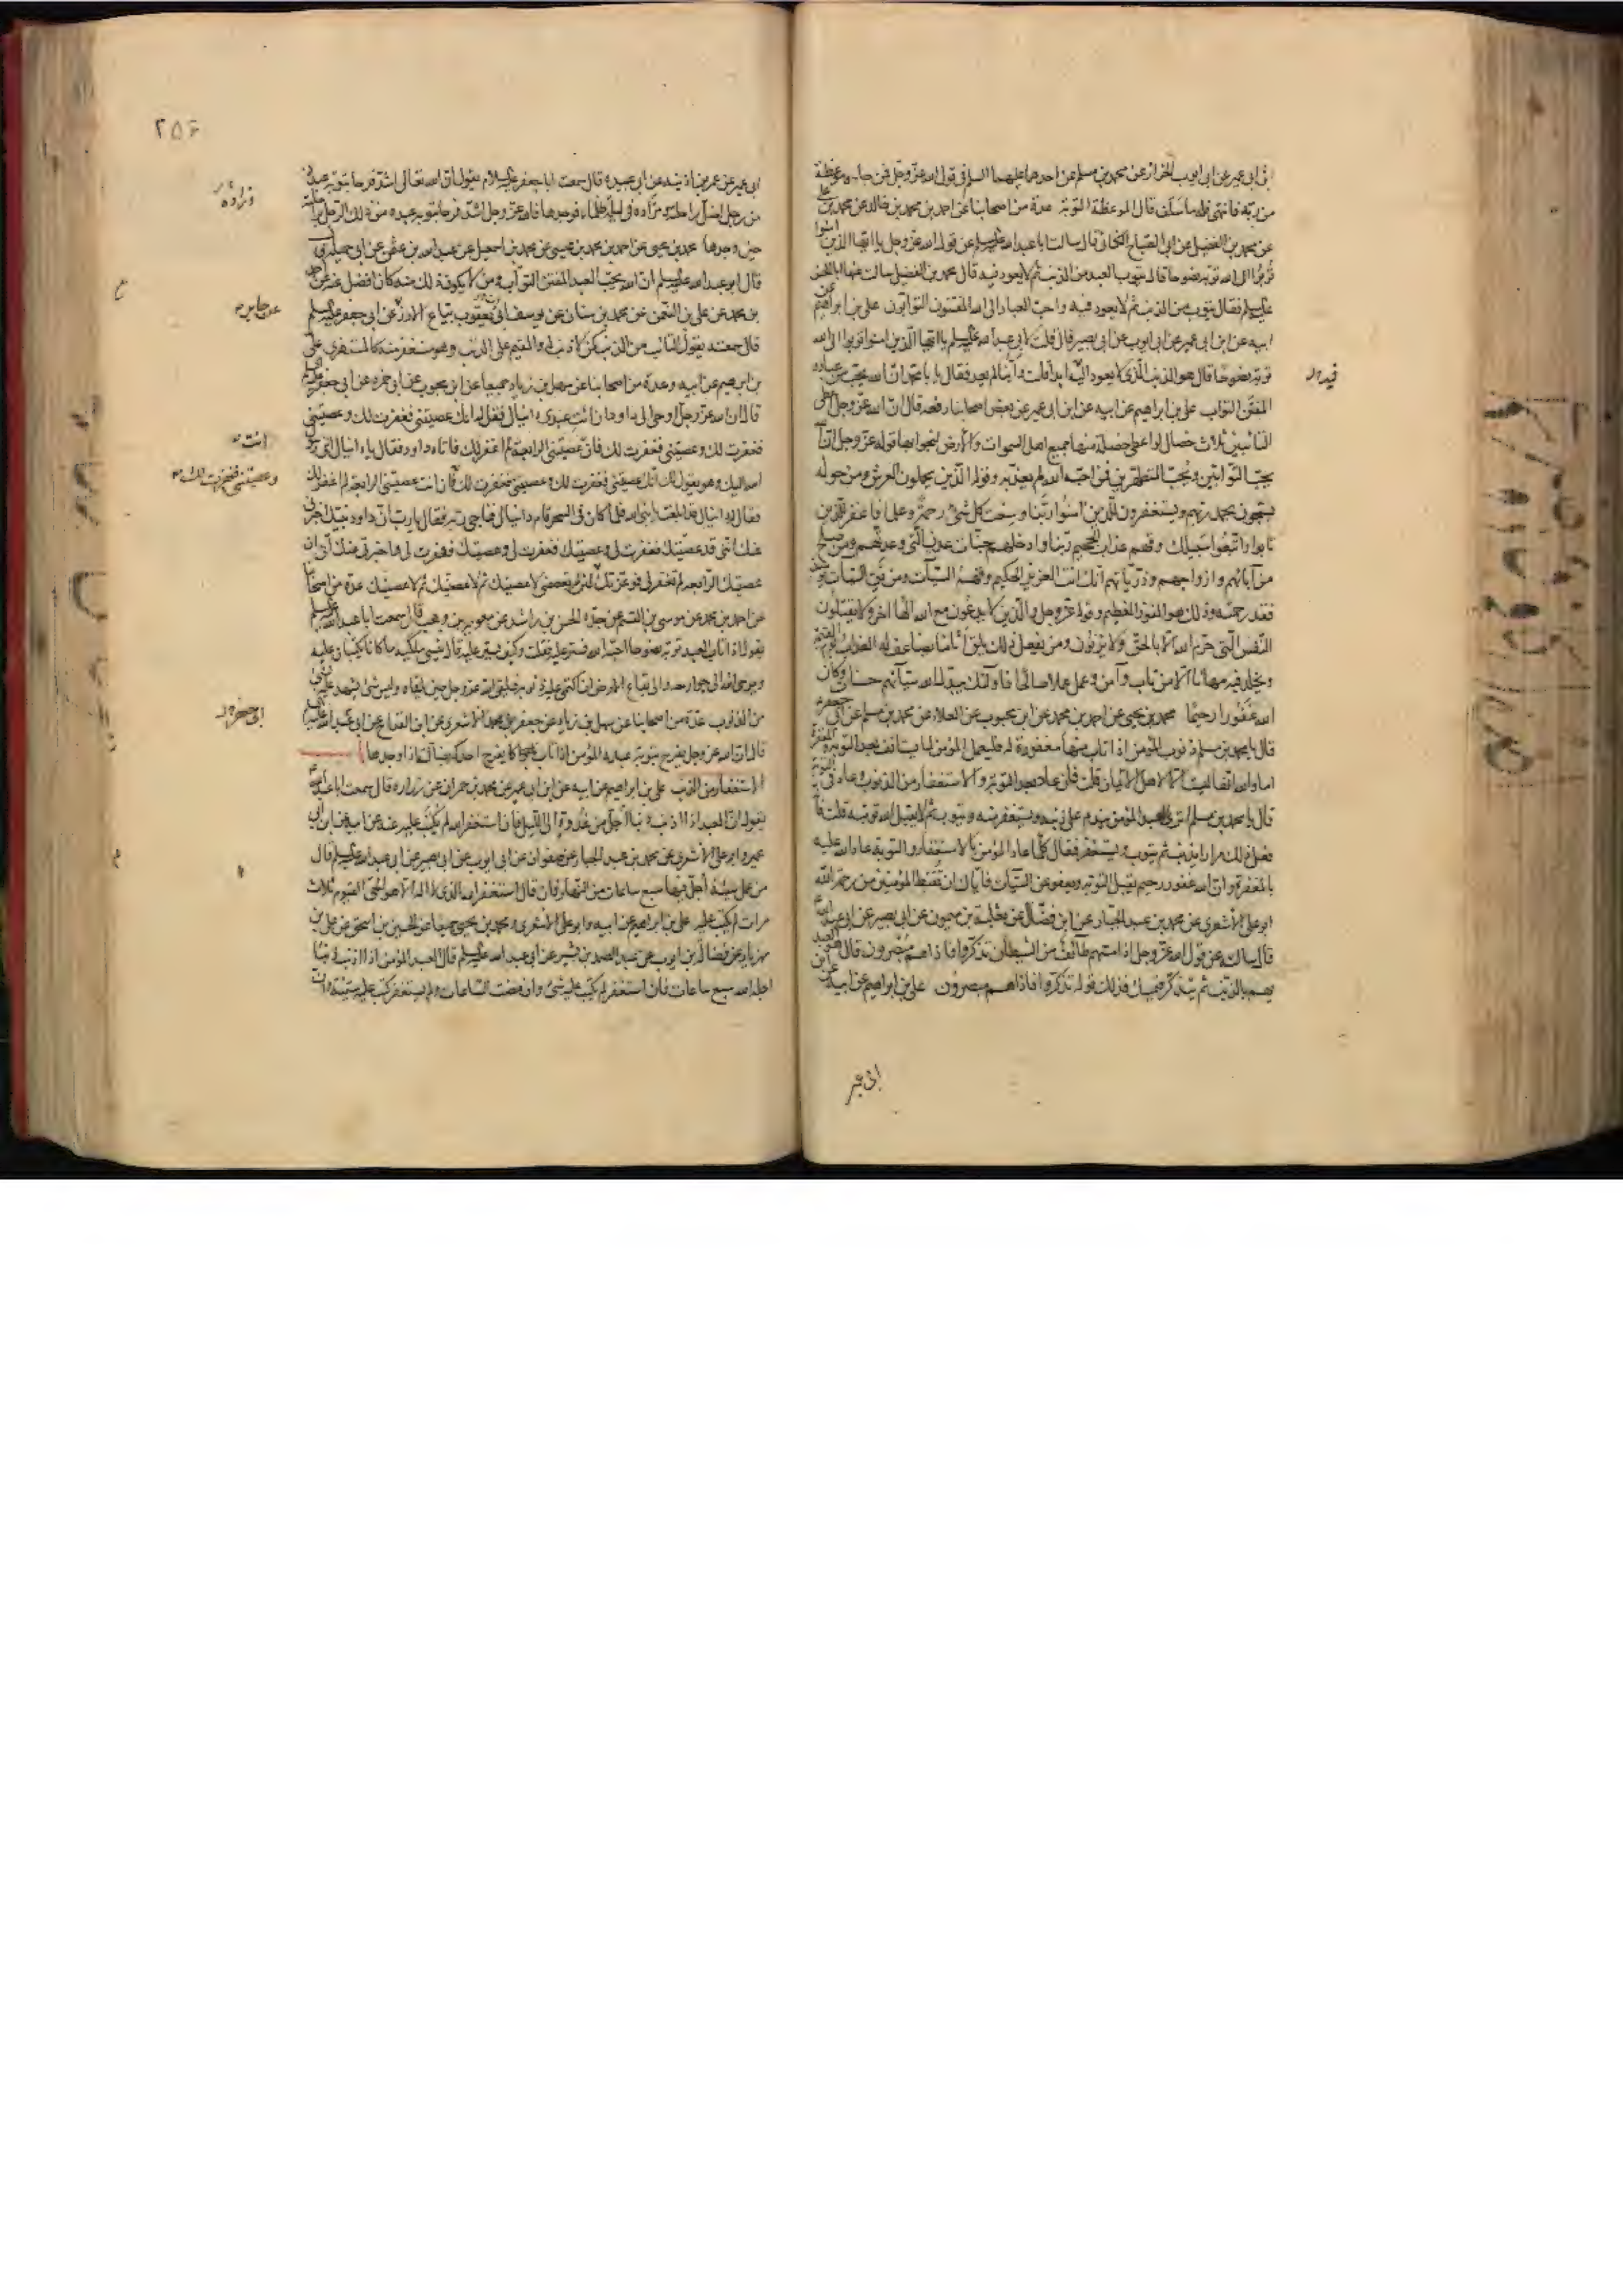 ابى عمير عن ابى ايوب الخزاز عن محمد بن مسلم عن احدهما عليهما السلم فى قول الله عز وجل فمن جاءه موعظة
من ربه فانتهى فله ما سلف قال الموعظة التوبة عدة من اصحابنا عن احمد بن محمد بن خالد عن محمد بن على
عن محمد بن الفضيل عن ابى الصباح الكنانى قال سالت ابا عبد الله عليه السلم عن قول الله عز وجل يا ايها الذين امنوا
توبوا الى الله توبة نصوحا قال يتوب العبد من الذنب ثم لا يعود فيه قال محمد بن الفضيل سالت عنها ابا الحسن
عليه السلم فقال يتوب من الذنب ثم لا يعود فيه واحب العباد الى الله المفتنون التوابون على بن ابراهيم عن
ابيه عن ابن ابى عمير عن ابى ايوب عن ابى بصير قال قلت لابى عبد الله عليه السلم يا ايها الذين امنوا توبوا الى الله
توبة نصوحا قال هو الذنب الذى لا يعود اليه ابدا قلت واينا لم يعد فقال يا با محمد ان الله يحب من عباده
المفتن التواب على بن ابراهيم عن ابيه عن ابن ابى عمير عن بعض اصحابنا رفعه قال ان الله عز وجل اعطى
التائبين ثلاث خصال لو اعطى خصلة منها جميع اهل السموات والارض لنجوا بها قوله عز وجل ان الله
يحب التوابين ويحب المتطهرين فمن احبه الله لم يعذبه وقوله الذين يحملون العرش ومن حوله
يسبحون بحمد ربهم ويستغفرون للذين امنوا ربنا وسعت كل شئ رحمة وعلما فاغفر للذين
تابوا واتبعوا سبيلك وقهم عذاب الجحيم ربنا وادخلهم جنات عدن التى وعدتهم ومن صلح
من آبائهم وازواجهم وذرياتهم انك انت العزيز الحكيم وقهم السيآت ومن تق السيآت يومئذ
فقد رحمته وذلك هو الفوز العظيم وقوله عز وجل والذين لا يدعون مع الله الها اخر ولا يقتلون
النفس التى حرم الله الا بالحق ولا يزنون ومن يفعل ذلك يلق اثاما يضاعف له العذاب يوم القيمة
ويخلد فيه مهانا الا من تاب وآمن وعمل عملا صالحا فاولئك يبدل الله سيآتهم حسنات وكان
الله غفورا رحيما محمد بن يحيى عن احمد بن محمد عن ابن محبوب عن العلاء عن محمد بن مسلم عن ابى جعفر
قال يا محمد بن مسلم ذنوب المؤمن اذا تاب منها مغفورة له فليعمل المؤمن لما يستانف بعد التوبة والمغفرة
اما والله انها ليست الا لاهل الايمان قلت فان عاد بعد التوبة والاستغفار من الذنوب وعاد فى التوبة
قال يا محمد بن مسلم اترى العبد المؤمن يندم على ذنبه ويستغفر منه ويتوب ثم لا يقبل الله توبته قلت فانه
فعل ذلك مرارا يذنب ثم يتوب ويستغفر فقال كلما عاد المؤمن بالاستغفار والتوبة عاد الله عليه
بالمغفرة وان الله غفور رحيم يقبل التوبة ويعفو عن السيآت فاياك ان تقنط المؤمنين من رحمة الله
ابو على الاشعرى عن محمد بن عبد الجبار عن ابن فضال عن ثعلبة بن ميمون عن ابى بصير عن ابى عبد الله
قال سالته عن قول الله عز وجل اذا مسهم طائف من الشيطان تذكروا فاذا هم مبصرون قال هو العبد
يهم بالذنب ثم يتذكر فيمسك فذلك قوله تذكروا فاذا هم مبصرون على بن ابراهيم عن ابيه عن ابن
ابى عمير
فيه
٢٥۶
ابى عمير عن عمر بن اذينة عن ابى عبيدة قال سمعت ابا جعفر عليه السلام يقول ان الله تعالى اشد فرحا بتوبة عبده
من رجل اضل راحلته ومزاده فى ليلة ظلماء فوجدها فالله عز وجل اشد فرحا بتوبة عبده من ذلك الرجل براحلته
حين وجدها محمد بن يحيى عن احمد بن محمد بن عيسى عن محمد بن اسمعيل عن عبد الله بن عثمن عن ابى جميلة
قال ابو عبد الله عليه السلم ان الله يحب العبد المفتن التواب ومن لا يكون ذلك منه كان افضل
بن محمد عن على بن النعمن عن محمد بن سنان عن يوسف ابى يعقوب بياع الارز عن ابى جعفر عليه السلم
قال سمعته يقول التائب من الذنب كمن لا ذنب له والمقيم على الذنب وهو مستغفر منه كالمستهزئ على
بن ابرهيم عن ابيه وعدة من اصحابنا عن سهل بن زياد جميعا عن ابن محبوب عن ابى حمزة عن ابى جعفر عليه السلم
قال ان الله عز وجل اوحى الى داود ان ائت عبدى دانيال فقل له انك عصيتنى فغفرت لك وعصيتنى
فغفرت لك وعصيتنى فغفرت لك فان عصيتنى الرابعة لم اغفر لك فاتاه داود فقال يا دانيال اننى رسول
الله اليك وهو يقول لك انك عصيتنى فغفرت لك وعصيتنى فغفرت لك فان انت عصيتنى الرابعة لم اغفر لك
فقال له دانيال قد ابلغت يا نبى الله فلما كان فى السحر قام دانيال فناجى ربه فقال يا رب ان داود نبيك اخبرنى
عنك اننى قد عصيتك فغفرت لى وعصيتك فغفرت لى وعصيتك فغفرت لى واخبرنى عنك انى ان
عصيتك الرابعة لم تغفر لى فوعزتك لئن لم تعصمنى لاعصينك ثم لاعصينك ثم لاعصينك عدة من اصحابنا
عن احمد بن محمد عن موسى بن القسم عن جده الحسن بن راشد عن معوية بن وهب قال سمعت ابا عبد الله عليه السلم
يقول اذا تاب العبد توبة نصوحا احبه الله فستر عليه فقلت وكيف يستر عليه قال ينسى ملكيه ما كانا يكتبان عليه
ويوحى الله الى جوارحه والى بقاع الارض ان اكتمى عليه ذنوبه فيلقى الله عز وجل حين يلقاه وليس شئ يشهد عليه بشئ
من الذنوب عدة من اصحابنا عن سهل بن زياد عن جعفر بن محمد الاشعرى عن ابن القداح عن ابى عبد الله عليه السلم
قال ان الله عز وجل يفرح بتوبة عبده المؤمن اذا تاب كما يفرح احدكم بضالته اذا وجدها
الاستغفار من الذنب على بن ابراهيم عن ابيه عن ابن ابى عمير عن محمد بن حمران عن زرارة قال سمعت ابا عبد الله
يقول ان العبد اذا اذنب ذنبا اجل من غدوة الى الليل فان استغفر الله لم يكتب عليه عنه عن ابيه عن ابن ابى
عمير وابو على الاشعرى عن محمد بن عبد الجبار عن صفوان عن ابى ايوب عن ابى بصير عن ابى عبد الله عليه السلم قال
من عمل سيئة اجل فيها سبع ساعات من النهار فان قال استغفر الله الذى لا اله الا هو الحى القيوم ثلاث
مرات لم يكتب عليه على بن ابراهيم عن ابيه وابو على الاشعرى ومحمد بن يحيى جميعا عن الحسين بن اسحق عن على بن
مهزيار عن فضالة بن ايوب عن عبد الصمد بن بشير عن ابى عبد الله عليه السلم قال العبد المؤمن اذا اذنب ذنبا
اجله الله سبع ساعات فان استغفر لم يكتب عليه شئ وان مضت الساعات ولم يستغفر كتب عليه سيئة وان
عن جابر
انت
وعصيتنى فغفرت لك